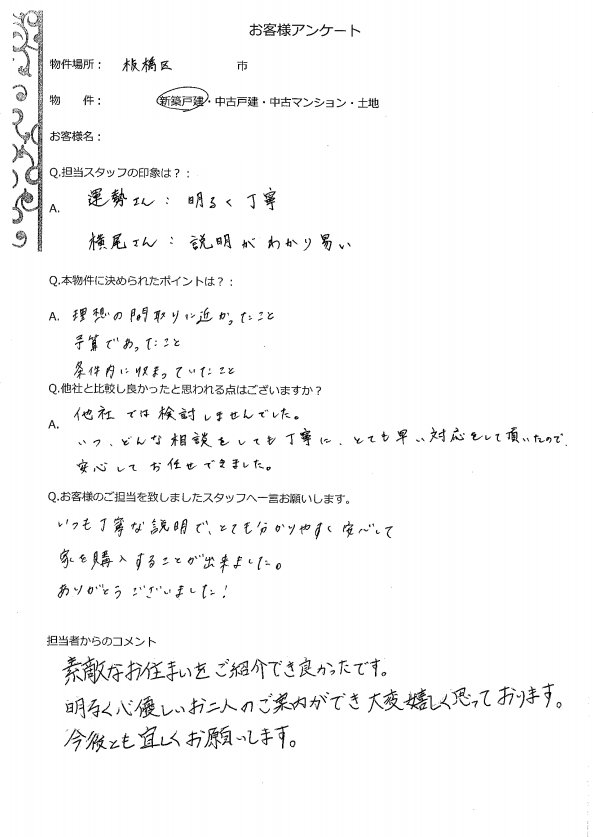 お客様アンケート
物件場所： 板橋区 市
物 件： 新築戸建・中古戸建・中古マンション・土地
お客様名：
Q.担当スタッフの印象は？：
A. 運勢さん：明るく丁寧
横尾さん：説明がわかり易い
Q.本物件に決められたポイントは？：
A. 理想の間取りに近かったこと
予算であったこと
条件内に収まっていたこと
Q.他社と比較し良かったと思われる点はございますか？
A. 他社では検討しませんでした。
いつ、どんな相談をしても丁寧に、とても早い対応をして頂いたので、
安心してお任せできました。
Q.お客様のご担当を致しましたスタッフへ一言お願いします。
いつも丁寧な説明で、とても分かりやすく安心して
家を購入することが出来ました。
ありがとうございました！
担当者からのコメント
素敵なお住まいをご紹介でき良かったです。
明るく心優しいお二人のご案内ができ大変嬉しく思っております。
今後とも宜しくお願いします。